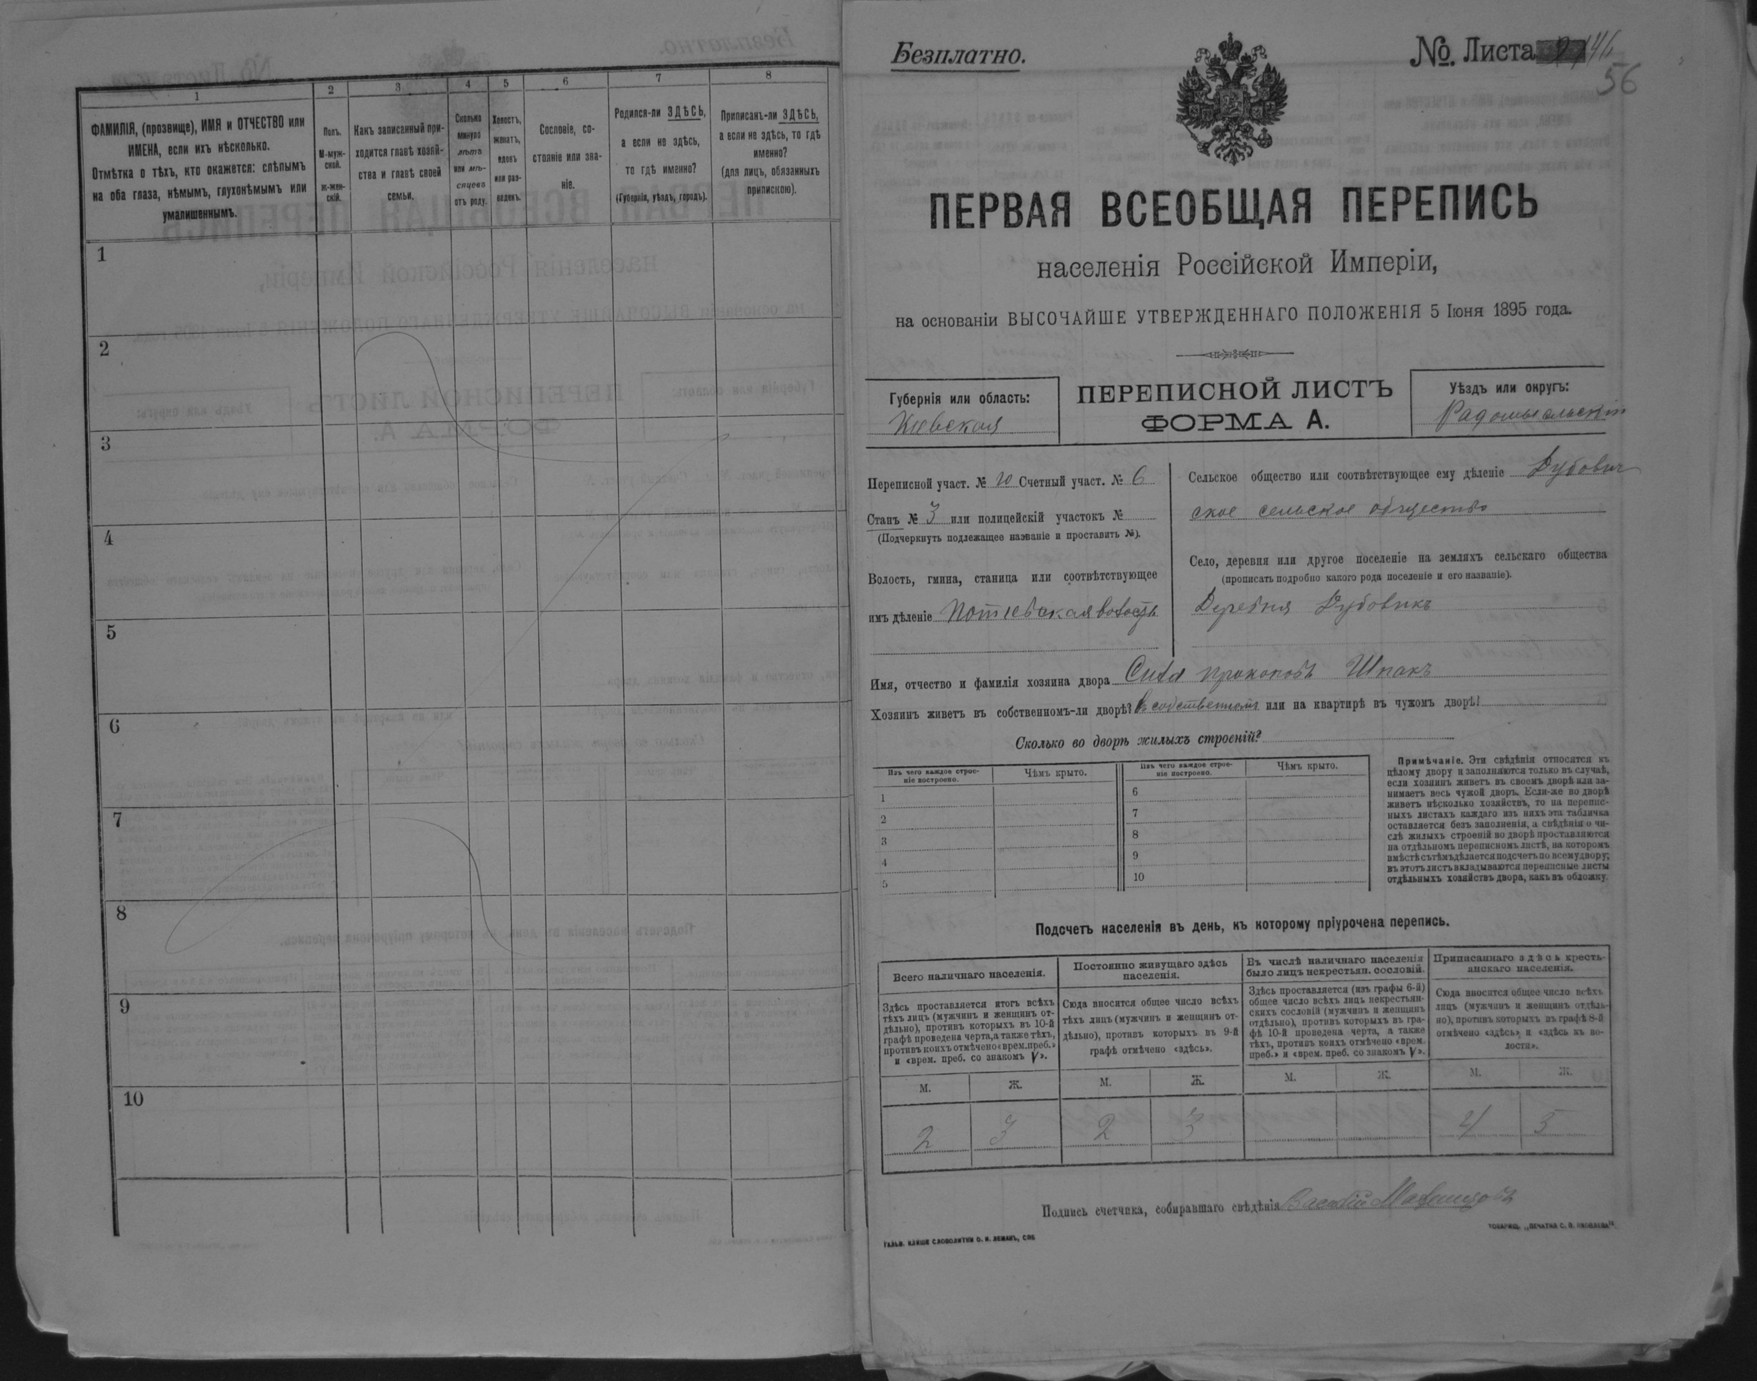 1
2
3
4
5
6
7
8
ФАМИЛІЯ, (прозвище), ИМЯ и ОТЧЕСТВО или
ИМЕНА, если ихъ нѣсколько.
Отмѣтка о тѣхъ, кто окажется: слѣпымъ
на оба глаза, нѣмымъ, глухонѣмымъ или
умалишеннымъ.
Полъ.
М-муж-
ской.
Ж-жен-
скій.
Какъ записанный при-
ходится главѣ хозяй-
ства и главѣ своей
семьи.
Сколько
минуло
лѣтъ
или мѣ-
сяцевъ
отъ роду.
Холостъ,
женатъ,
вдовъ
или раз-
веденъ.
Сословіе, со-
стояніе или зва-
ніе.
Родился-ли ЗДѢСЬ,
а если не здѣсь,
то гдѣ именно?
(Губернія, уѣздъ, городъ).
Приписанъ-ли ЗДѢСЬ,
а если не здѣсь, то гдѣ
именно?
(для лицъ, обязанныхъ
припискою).
1
2
3
4
5
6
7
8
9
10
Безплатно.
№. Листа
56
ПЕРВАЯ ВСЕОБЩАЯ ПЕРЕПИСЬ
населенія Россійской Имперіи,
на основаніи ВЫСОЧАЙШЕ УТВЕРЖДЕННАГО ПОЛОЖЕНІЯ 5 Іюня 1895 года.
Губернія или область:
Кіевская
ПЕРЕПИСНОЙ ЛИСТЪ
ФОРМА А.
Уѣздъ или округъ:
Радомысльскій
Переписной участ. № 10 Счетный участ. № 6
Станъ № 3 или полицейскій участокъ №
(Подчеркнуть подлежащее названіе и проставить №).
Волость, гмина, станица или соотвѣтствующее
имъ дѣленіе Потіевская волость
Сельское общество или соотвѣтствующее ему дѣленіе Дубович
ское сельское общество
Село, деревня или другое поселеніе на земляхъ сельскаго общества
(прописать подробно какого рода поселеніе и его названіе).
Деревня Дубовикъ
Имя, отчество и фамилія хозяина двора Сила Прокоповъ Шпакъ
Хозяинъ живетъ въ собственномъ-ли дворѣ? въ собственномъ или на квартирѣ въ чужомъ дворѣ?
Сколько во дворѣ жилыхъ строеній?
Изъ чего каждое строе-
ніе построено.
Чѣмъ крыто.
Изъ чего каждое строе-
ніе построено.
Чѣмъ крыто.
1
2
3
4
5
6
7
8
9
10
Примѣчаніе. Эти свѣдѣнія относятся къ
цѣлому двору и заполняются только въ случаѣ,
если хозяинъ живетъ въ своемъ дворѣ или за-
нимаетъ весь чужой дворъ. Если-же во дворѣ
живетъ нѣсколько хозяйствъ, то на перепис-
ныхъ листахъ каждаго изъ нихъ эта табличка
оставляется безъ заполненія, а свѣдѣнія о чи-
слѣ жилыхъ строеній во дворѣ проставляются
на отдѣльномъ переписномъ листѣ, на которомъ
вмѣстѣ съ тѣмъ дѣлается подсчетъ по всему двору;
въ этотъ листъ вкладываются переписные листы
отдѣльныхъ хозяйствъ двора, какъ въ обложку.
Подсчетъ населенія въ день, къ которому пріурочена перепись.
Всего наличнаго населенія.
Постоянно живущаго здѣсь
населенія.
Въ числѣ наличнаго населенія
было лицъ некрестьян. сословій.
Приписаннаго здѣсь кресть-
янскаго населенія.
Здѣсь проставляется итогъ всѣхъ
тѣхъ лицъ (мужчинъ и женщинъ от-
дѣльно), противъ которыхъ въ 10-й
графѣ проведена черта, а также тѣхъ,
противъ коихъ отмѣчено «врем. преб.»
и «врем. преб. со знакомъ V».
Сюда вносится общее число всѣхъ
тѣхъ лицъ (мужчинъ и женщинъ от-
дѣльно), противъ которыхъ въ 9-й
графѣ отмѣчено «здѣсь».
Здѣсь проставляется (изъ графы 6-й)
общее число всѣхъ лицъ некрестьян-
скихъ сословій (мужчинъ и женщинъ
отдѣльно), противъ которыхъ въ гра-
фѣ 10-й проведена черта, а также
тѣхъ, противъ коихъ отмѣчено «врем.
преб.» и «врем. преб. со знакомъ V».
Сюда вносится общее число всѣхъ
лицъ (мужчинъ и женщинъ отдѣль-
но), противъ которыхъ въ графѣ 8-й
отмѣчено «здѣсь» и «здѣсь въ во-
лости».
М. Ж. М. Ж. М. Ж. М. Ж.
2 3 2 3 4 5
Подпись счетчика, собиравшаго свѣдѣнія
ГАЛЬВ. КЛИШЕ СЛОВОЛИТНИ О. И. ЛЕМАНЪ, СПБ
ТОВАРИЩ. „ПЕЧАТНЯ С. П. ЯКОВЛЕВА“